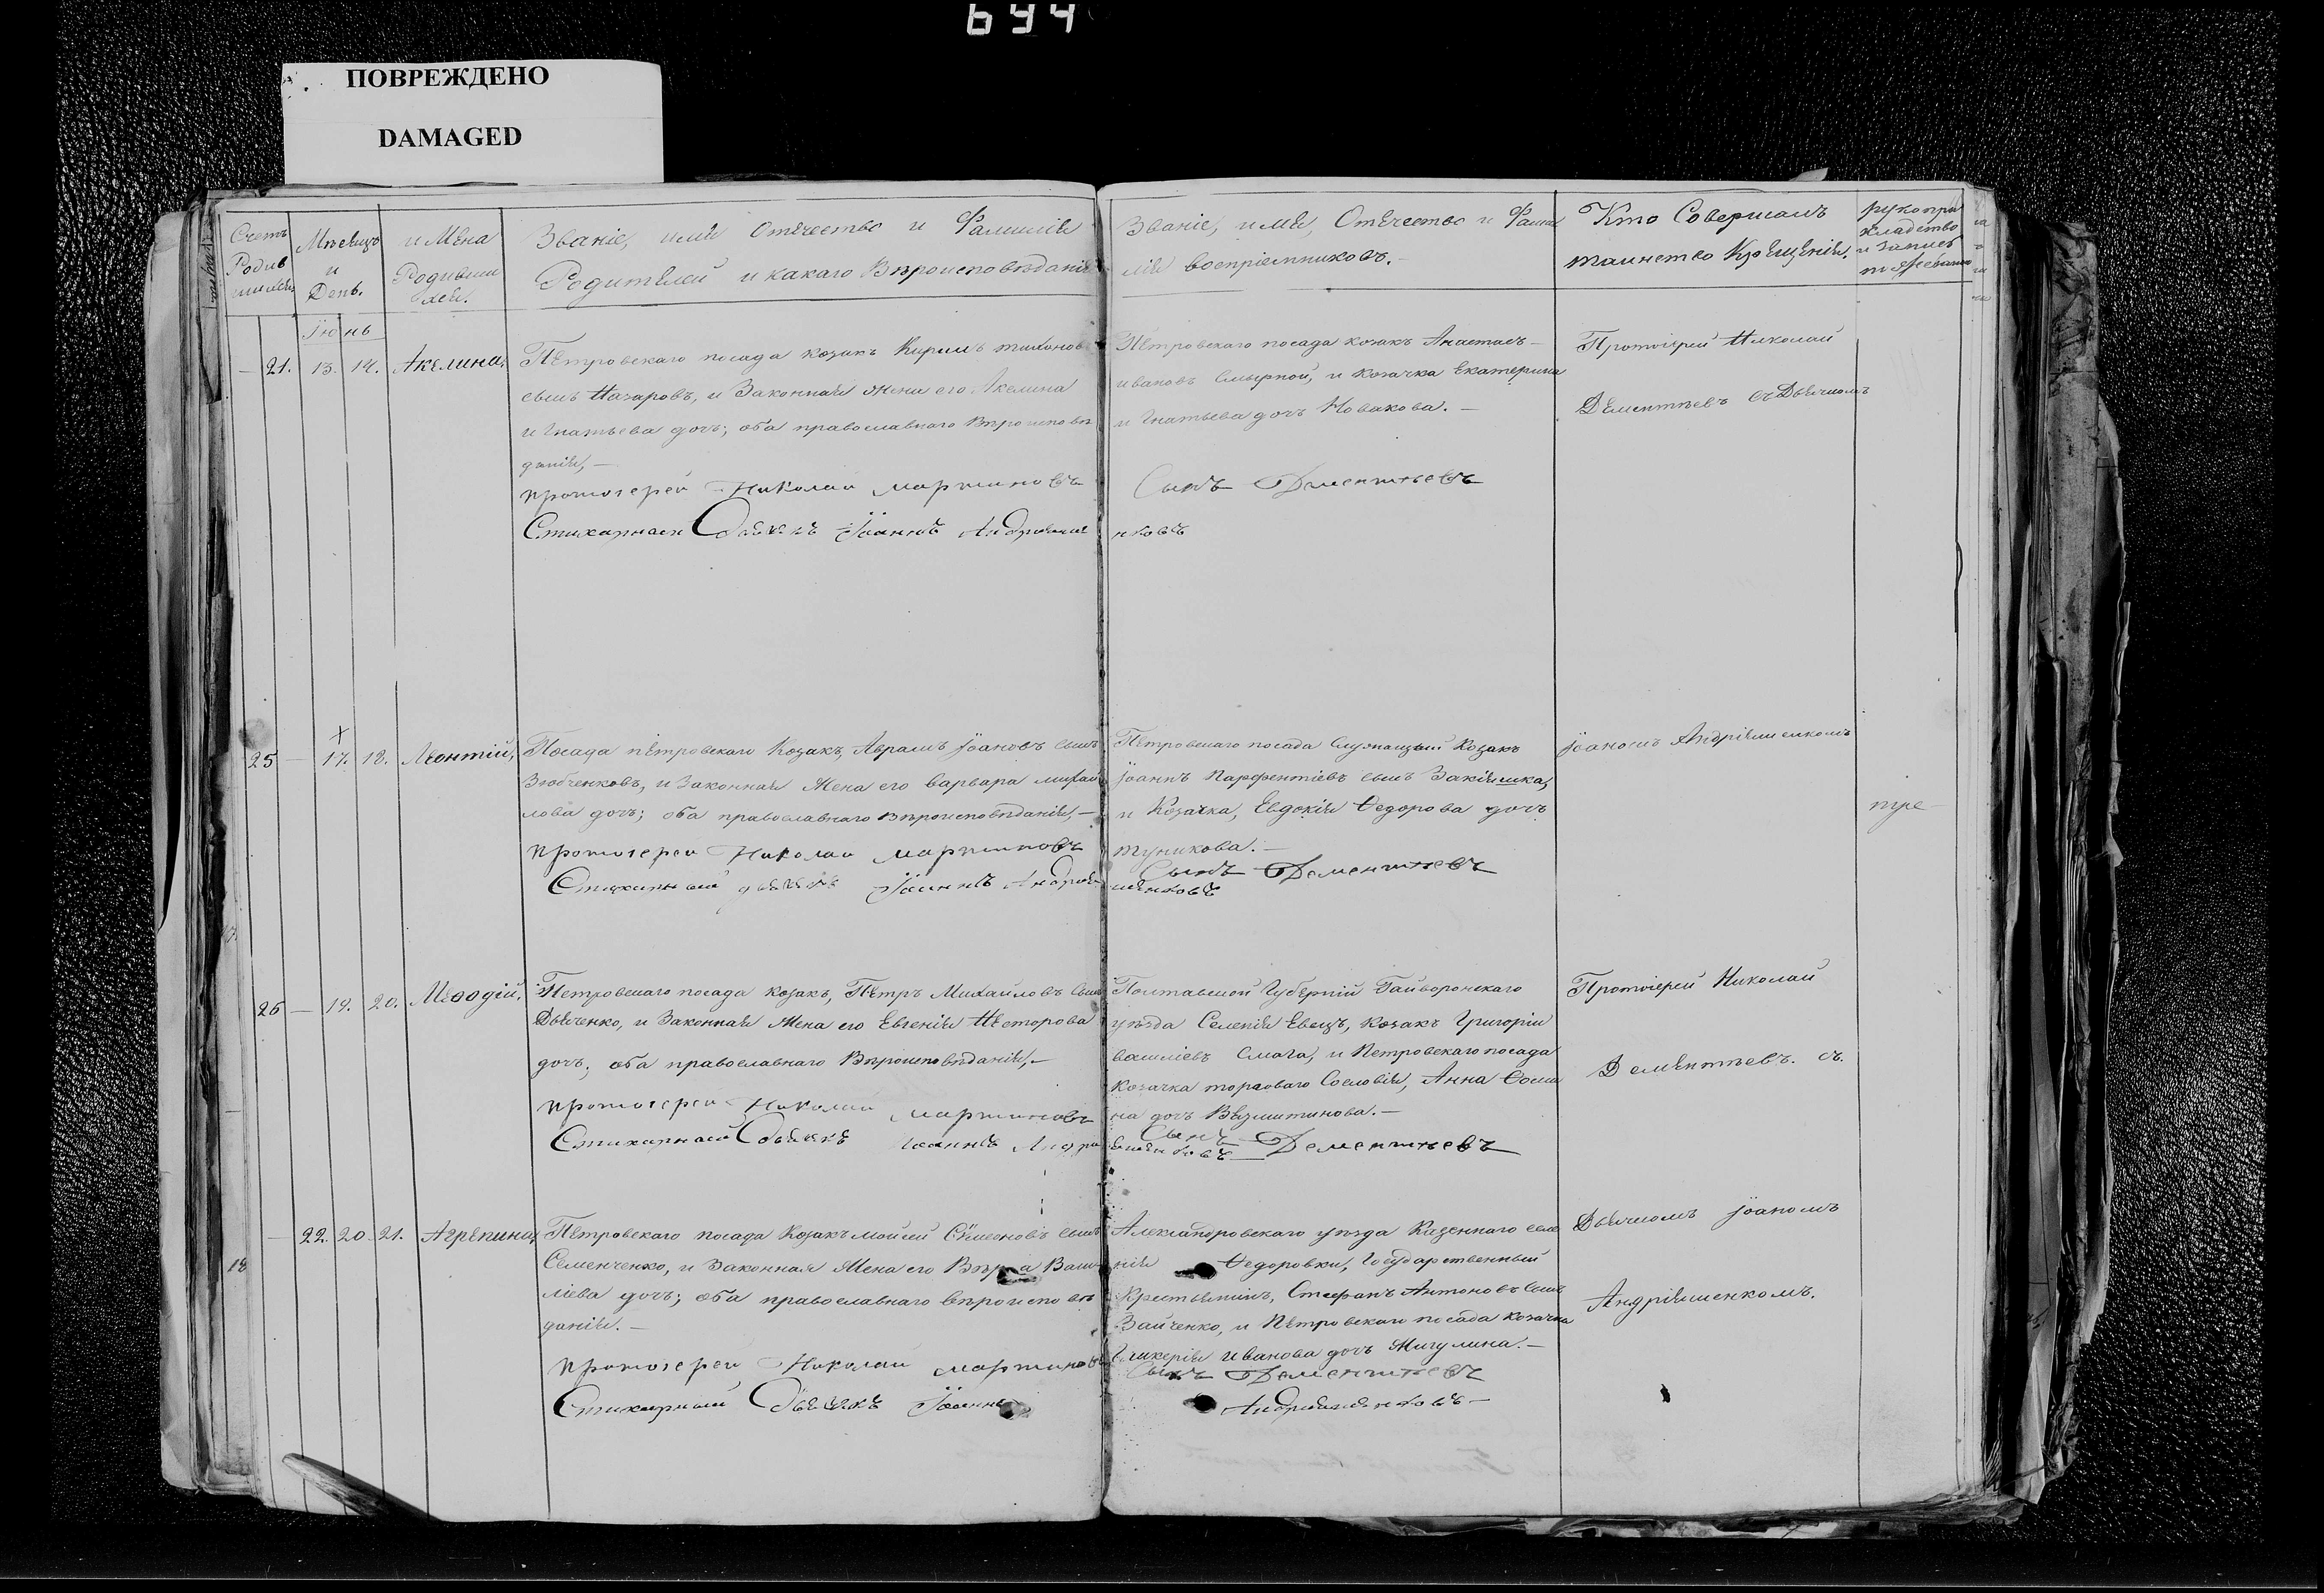 694
ПОВРЕЖДЕНО
DAMAGED
Счетъ Родив
Мѣсяцъ и День.
имена Родивши хся.
Званіе, имя Отечество и Фамилія
Родителей и какаго Вѣроисповѣданія
Званіе, имя, Отечество и Фами
лія воспріемниковъ.-
Кто Совершалъ
таинство Крещенія.
рукопри
кладство
и запись
Іюнь
21. 13. 14. Акелина,
Петровскаго посада козакъ Кирилъ тихоновъ
сынъ Назаровъ, и Законная жена его Акелина
игнатьева дочь; оба православнаго Вѣроисповѣ
данія,-
протоіерей Николай мартиновъ
Стихарный Дьячекъ Іоаннъ Андріяше
Петровскаго посада козакъ Анастасъ-
ивановъ Смырной, и козачка Екатерина
игнатьева дочь Новакова.-
Сынъ Дементьевъ
нковъ
Протоіерей Николай
Дементьевъ съ Дьячкомъ
25 - 17. 18. Леонтій,
Посада петровскаго Козакъ, Аврамъ Іоановъ сынъ
Зюбченковъ, и Законная Жена его варвара михай
лова дочь; оба православнаго вѣроисповѣданія,-
протоіерей Николай мартиновъ
Стихарный дьячекъ Іоаннъ Андрія
Петровскаго посада Служащый Козакъ
Іоаннъ Парфентіевъ сынъ Закіяшка,
и Козачка, Евдокія Ѳедорова дочь
туникова.-
Сынъ Дементьевъ
шенковъ
Іоаномъ Андріяшенкомъ
тре
26 - 19. 20. Меѳодій,
Петровскаго посада козакъ, Петръ Михайловъ сынъ
Дьяченко, и Законная Жена его Евгенія Несторова
дочь, оба православнаго Вѣроисповѣданія,-
протоіерей Николай мартиновъ
Стихарный Дьячекъ Іоаннъ Андрі
Полтавской Губерніи Гайворонскаго
уѣзда Селенія Евецъ, козакъ Григорій
василіевъ Смага, и Петровскаго посада
Козачка торговаго Сословія, Анна Ѳоми
на дочь Везмитинова.-
Сынъ Дементьевъ
яшенковъ
Протоіерей Николай
Дементьевъ. съ.
22. 20. 21. Агрепина,
Петровскаго посада Козакъ мойсей Сімеоновъ сынъ
Семенченко, и Законная Жена его Вѣра Васи
ліева дочь; оба православнаго вѣроисповѣ
данія.-
протоіерей Николай мартиновъ
Стихарный Дьячекъ Іоаннъ
Александровскаго уѣзда Казеннаго селе
нія Ѳедоровки, Государственный
Крестьянинъ, Стефанъ Антоновъ сынъ
Зайченко, и Петровскаго посада козачка
Гликерія иванова дочь Мигулина.-
Сынъ Дементьевъ
Андріяшенковъ-
Дьячкомъ Іоаномъ
Андріяшенкомъ.
18